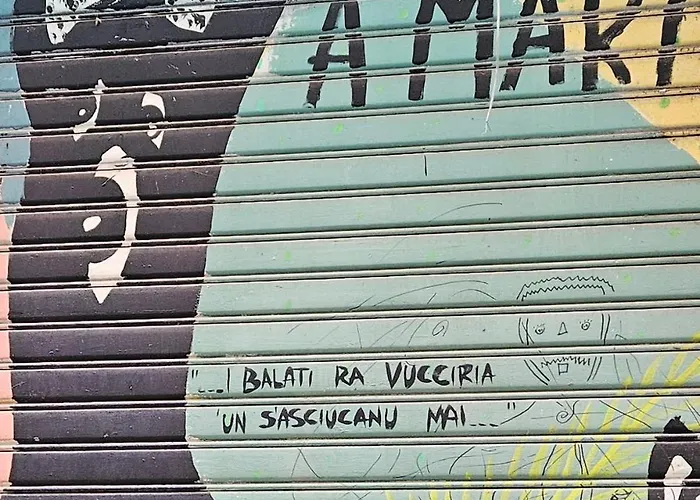 A MARI
"...I BALATI RA VUCCIRIA
'UN S'ASCIUCANU MAI..."